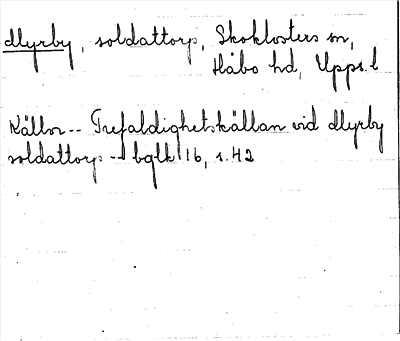 Myrby, soldattorp, Skoklosters sn,
Håbo hd, Upps. l
Källor -- Trefaldighetskällan vid Myrby
soldattorp -- bglk 16, s. 42